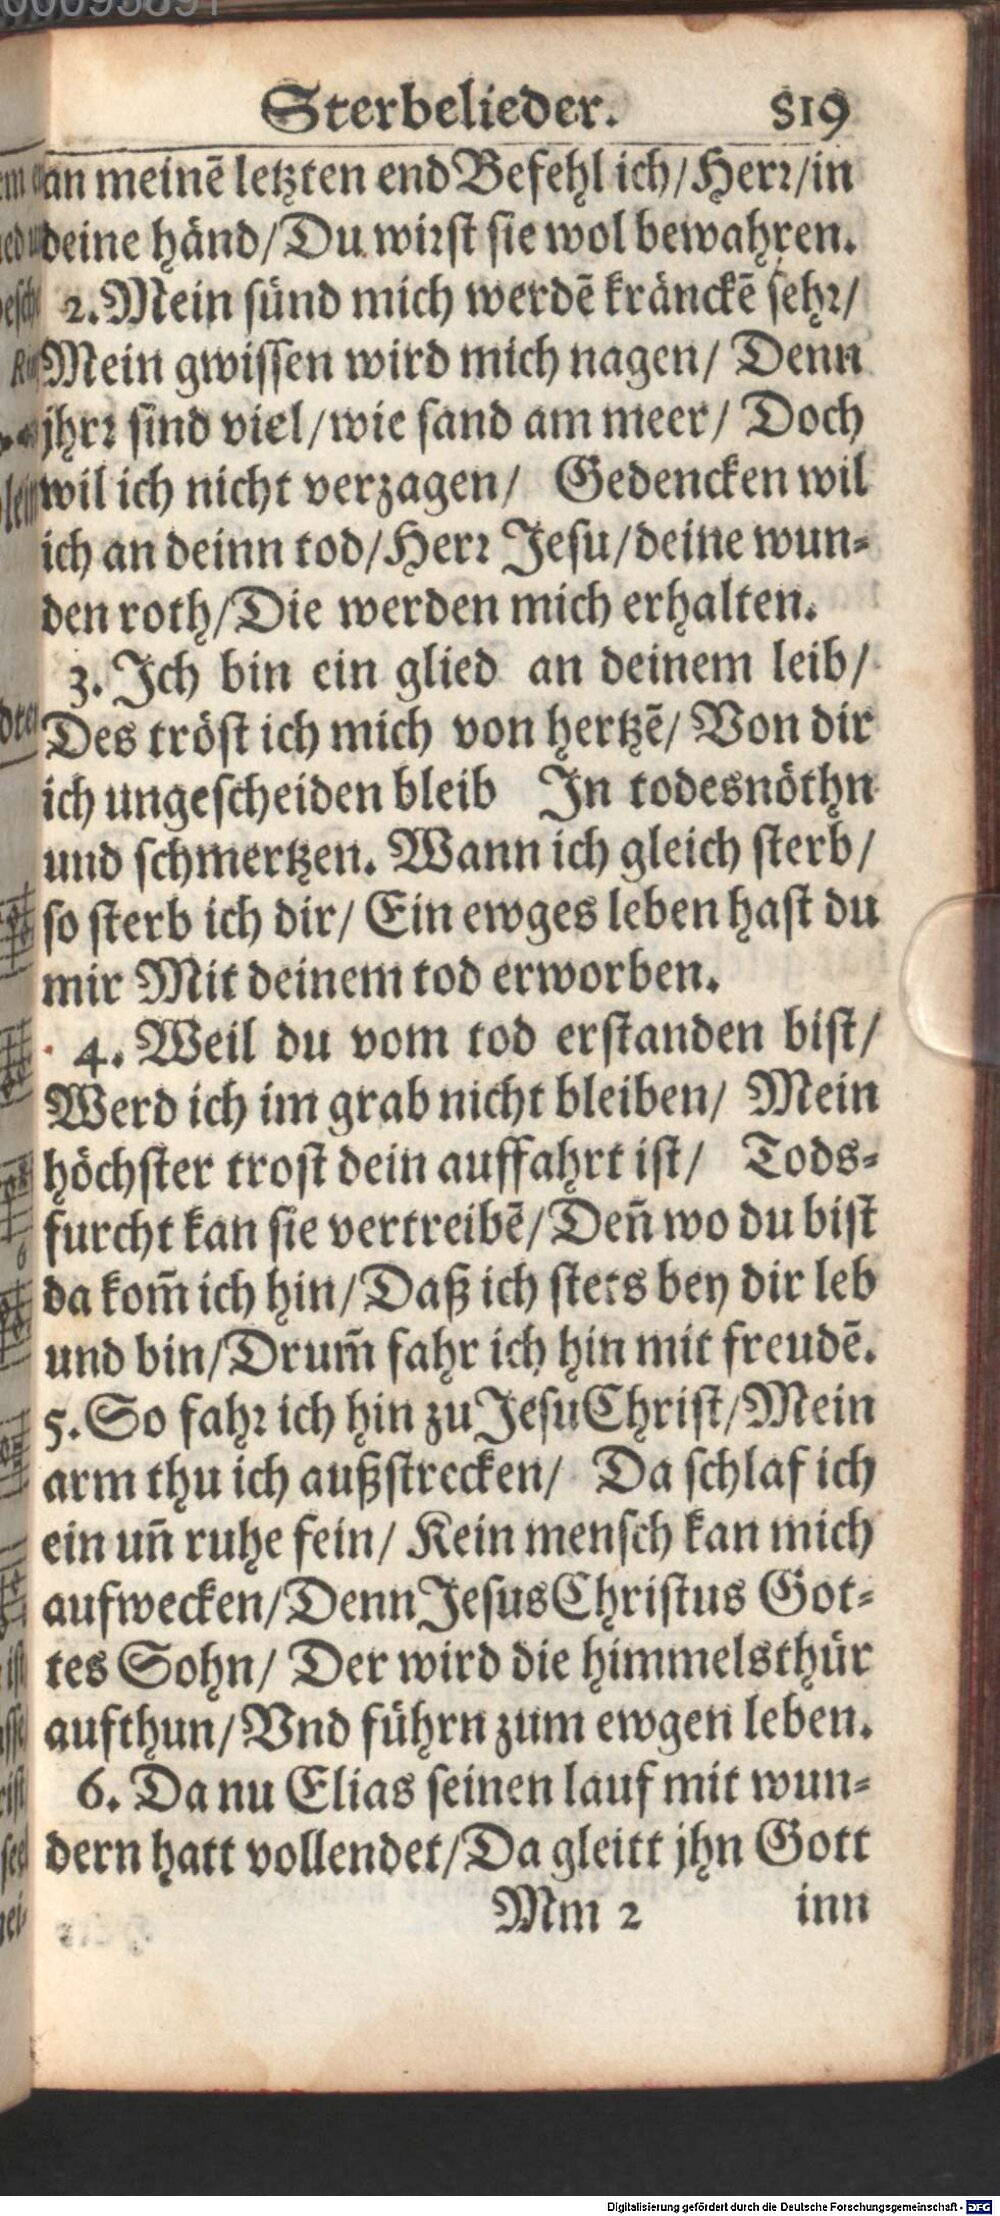 Sterbelieder. 819
an meinē letzten end Befehl ich/Herr/in
deine händ/Du wirst sie wol bewahren.
2. Mein sünd mich werdē kränckē sehr/
Mein gwissen wird mich nagen/ Denn
jhrr sind viel/wie sand am meer/ Doch
wil ich nicht verzagen/ Gedencken wil
ich an deinn tod/Herr Jesu/deine wun-
den roth/Die werden mich erhalten.
3. Ich bin ein glied an deinem leib/
Des tröst ich mich von hertzē/ Von dir
ich ungescheiden bleib In todesnöthn
und schmertzen. Wann ich gleich sterb/
so sterb ich dir/ Ein ewges leben hast du
mir Mit deinem tod erworben.
4. Weil du vom tod erstanden bist/
Werd ich im grab nicht bleiben/ Mein
höchster trost dein auffahrt ist/ Tods-
furcht kan sie vertreibē/Deñ wo du bist
da kom̃ ich hin/Daß ich stets bey dir leb
und bin/Drum̃ fahr ich hin mit freudē.
5. So fahr ich hin zu Jesu Christ/Mein
arm thu ich außstrecken/ Da schlaf ich
ein uñ ruhe fein/ Kein mensch kan mich
aufwecken/Denn Jesus Christus Got-
tes Sohn/ Der wird die himmelsthür
aufthun/Vnd führn zum ewgen leben.
6. Da nu Elias seinen lauf mit wun-
dern hatt vollendet/Da gleitt jhn Gott
Mm 2 inn
Digitalisierung gefördert durch die Deutsche Forschungsgemeinschaft - DFG